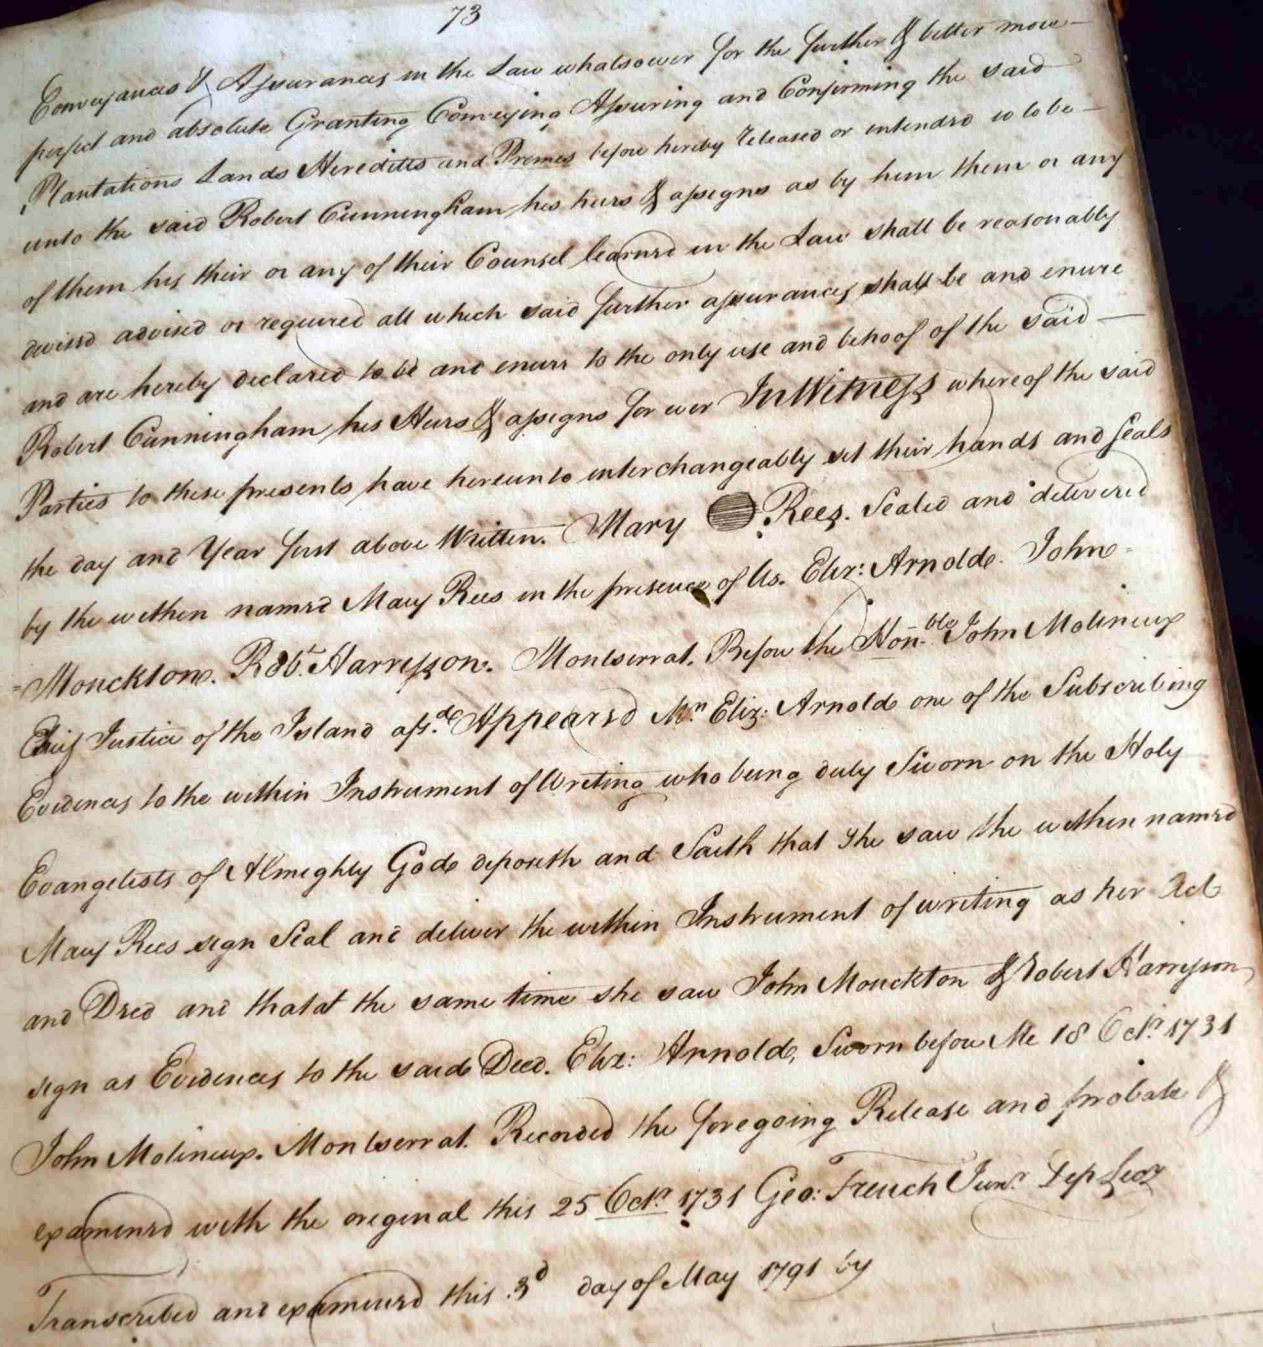 73
Conveyances & Assurances in the Law whatsoever for the further & better more
perfect and absolute Granting Conveying Assuring and Confirming the said
Plantations Lands Heredits and Premes before hereby released or intended so to be
unto the said Robert Cunningham his heirs & assigns as by him them or any
of them his their or any of their Counsel learned in the Law shall be reasonably
devised advised or required all which said further assurances shall be and enure
and are hereby declared to be and enure to the only use and behoof of the said
Robert Cunningham his Heirs & assigns for ever In Witness whereof the said
Parties to these presents have hereunto interchangeably set their hands and Seals
the day and Year first above Written. Mary Rees. Sealed and delivered
by the within named Mary Rees in the presence of Us. Eliz: Arnold. John
Monckton. Robt. Harrisson. Montserrat. Before the Honble John Molineux
Chief Justice of the Island afsd. Appeared Mrs Eliz: Arnold one of the Subscribing
Evidences to the within Instrument of Writing who being duly Sworn on the Holy
Evangelists of Almighty God deposeth and Saith that She saw the within named
Mary Rees sign Seal and deliver the within Instrument of writing as her Act
and Deed and that at the same time she saw John Monckton & Robert Harrisson
sign as Evidences to the said Deed. Eliz: Arnold, Sworn before Me 18 Octr. 1731
John Molineux. Montserrat. Recorded the foregoing Release and probate &
examined with the original this 25 Octr. 1731 Geo: French Junr. Dep Secr
Transcribed and examined this 3d day of May 1791 by